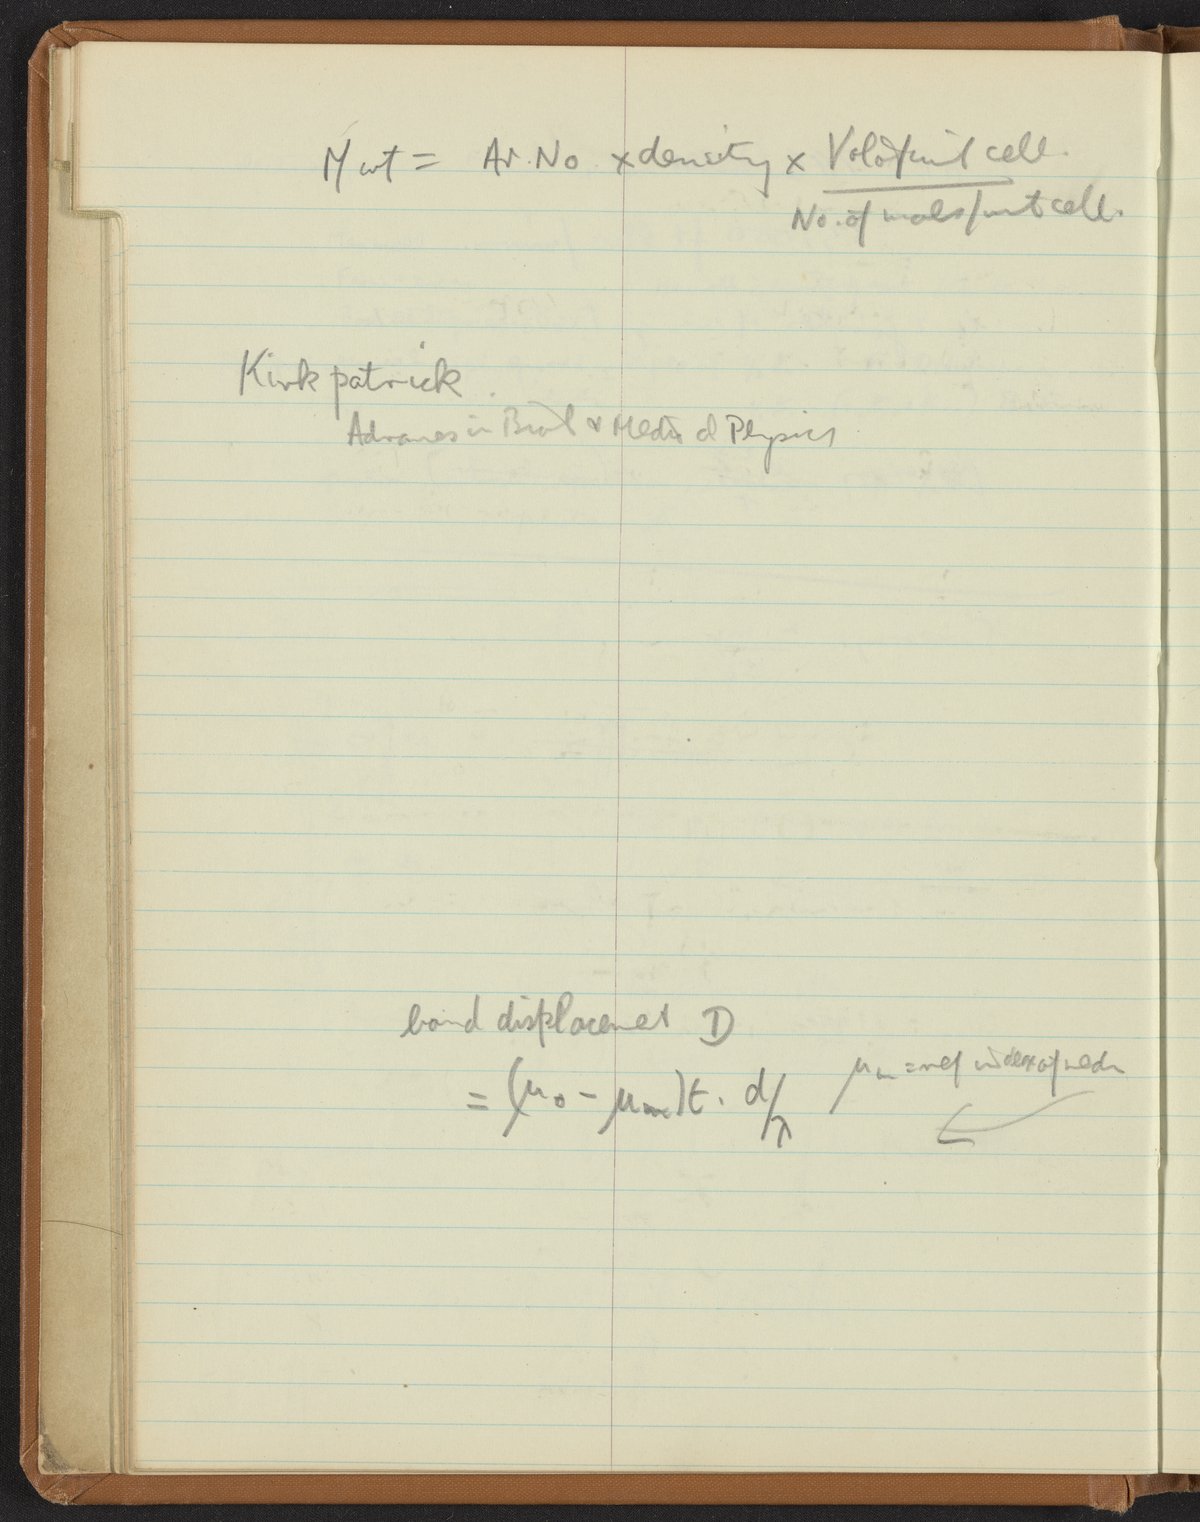 M wt = Av. No × density × Vol of unit cell.
No. of mols / unit cell.
Kirkpatrick
Advances in Biol & Medical Physics
band displacement D
= (μo - μm)t . d/λ
μm = ref index of medm